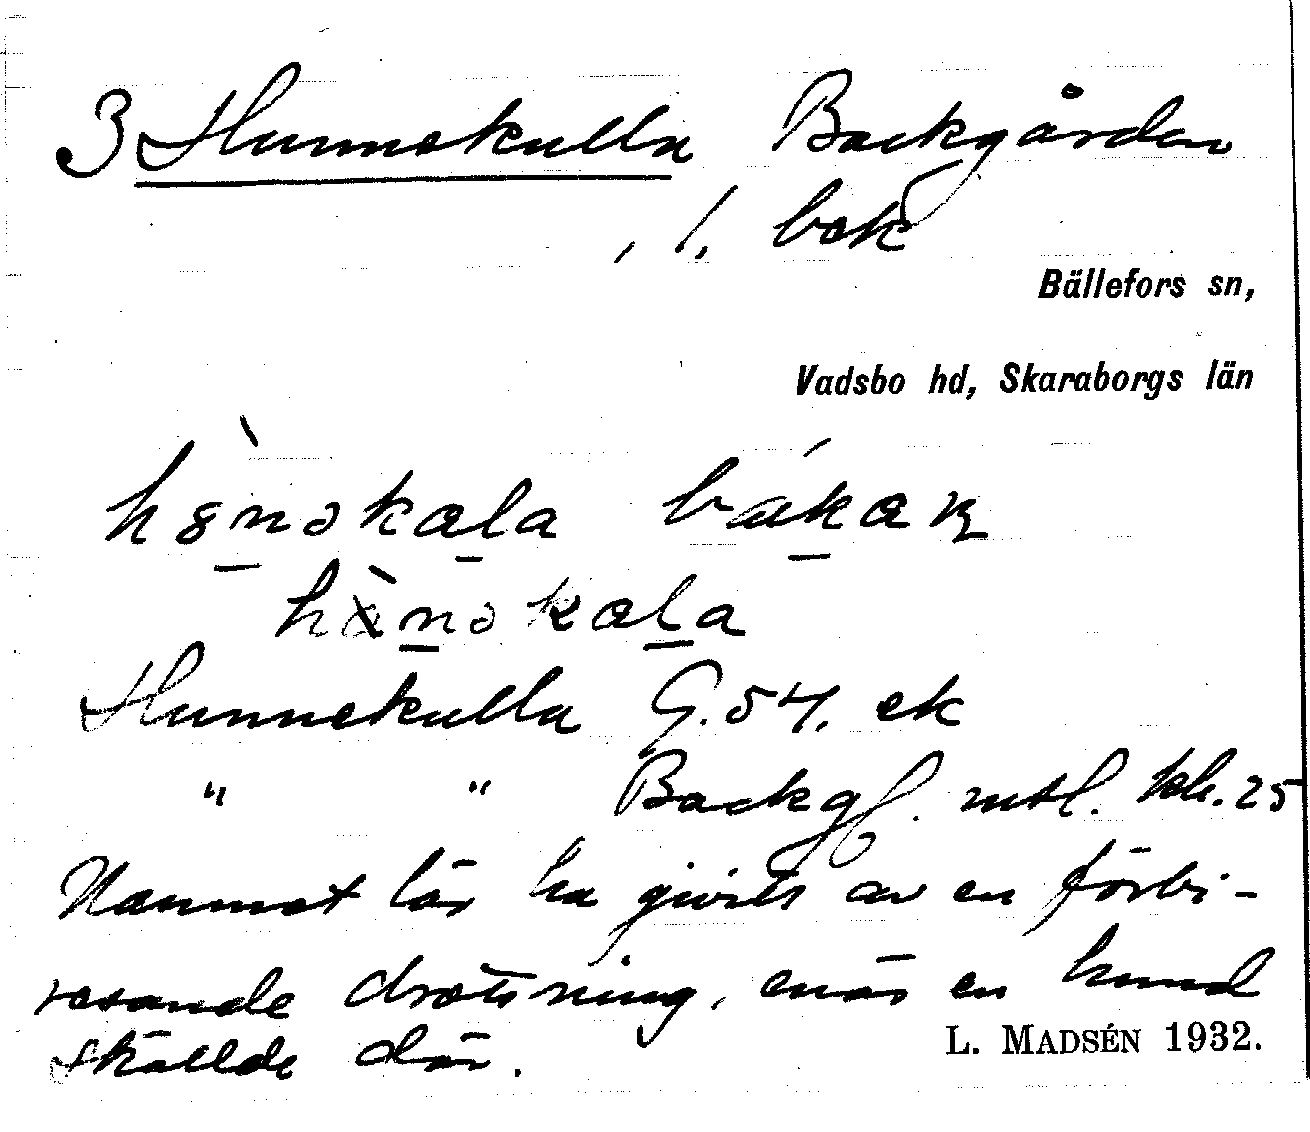 3 Hunnekulla Backgården
, /, bak
Bällefors sn,
Vadsbo hd, Skaraborgs län
Hunnekulla G. 54. ek
" " Backg. mtl. kk. 25
Namnet lär ha givits av en förbi-
resande drottning, enär en hund
skällde där.
L. MADSÉN 1932.